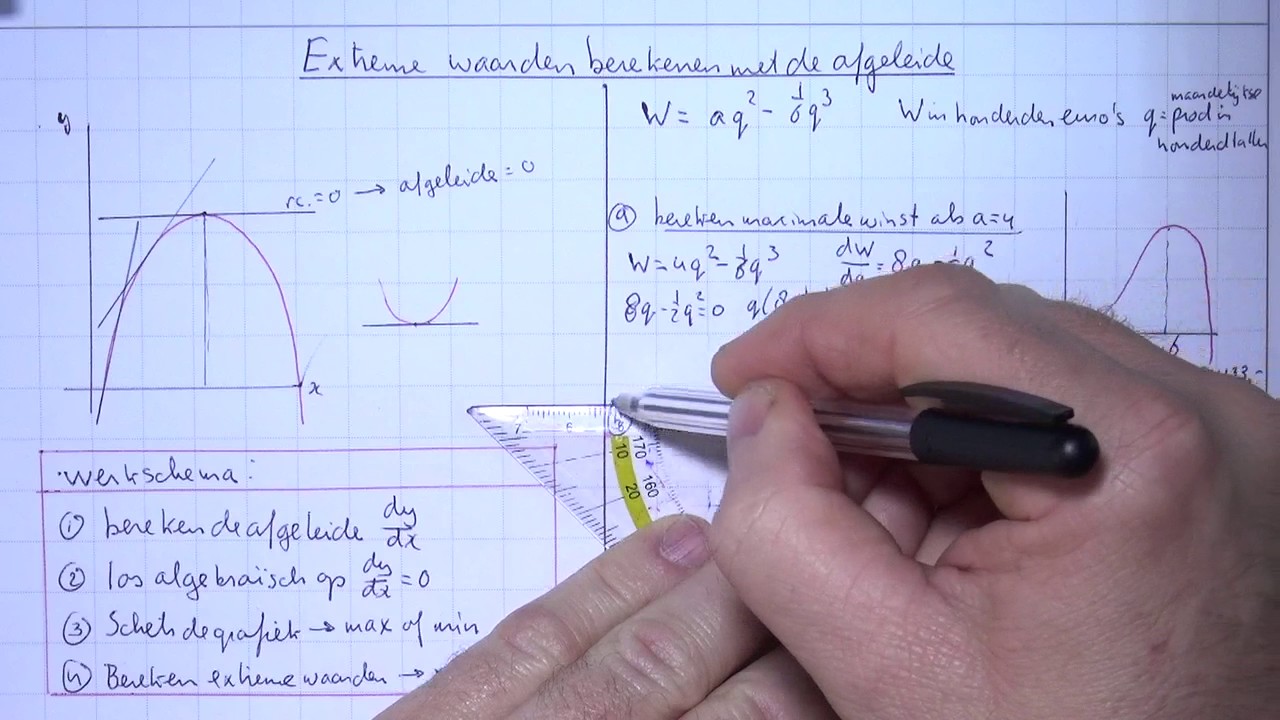 Extreme waarden berekenen met de afgeleide
y
rc.=0 → afgeleide=0
x
werkschema:
① bereken de afgeleide dy/dx
② los algebraïsch op dy/dx=0
③ Schets de grafiek → max of min
④ Bereken extreme waarden →
W= aq²-1/6q³ W in honderden euro's q= maandelijkse prod in honderdtallen
ⓐ bereken maximale winst als a=4
W=4q²-1/6q³ dW/dq=8q-
8q-1/2q²=0 q(8
7 6
10 170
20 160